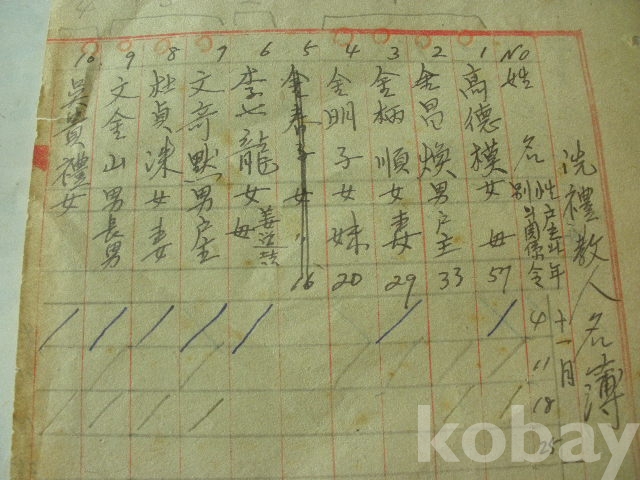 洗禮敎人名簿
No 姓名 性別 戶主와関係 年令 十一月 4 11 18 25
1 高德模 女 母 57
2 金昌煥 男 戶主 33
3 金柄順 女 妻 29
4 金明子 女 妹 20
5 金春子 女 〃 16
6 李七龍 女 母
7 文奇默 男 戶主
8 杜貞洙 女 妻
9 文金山 男 長男
10 吳貴禮 女
kobay